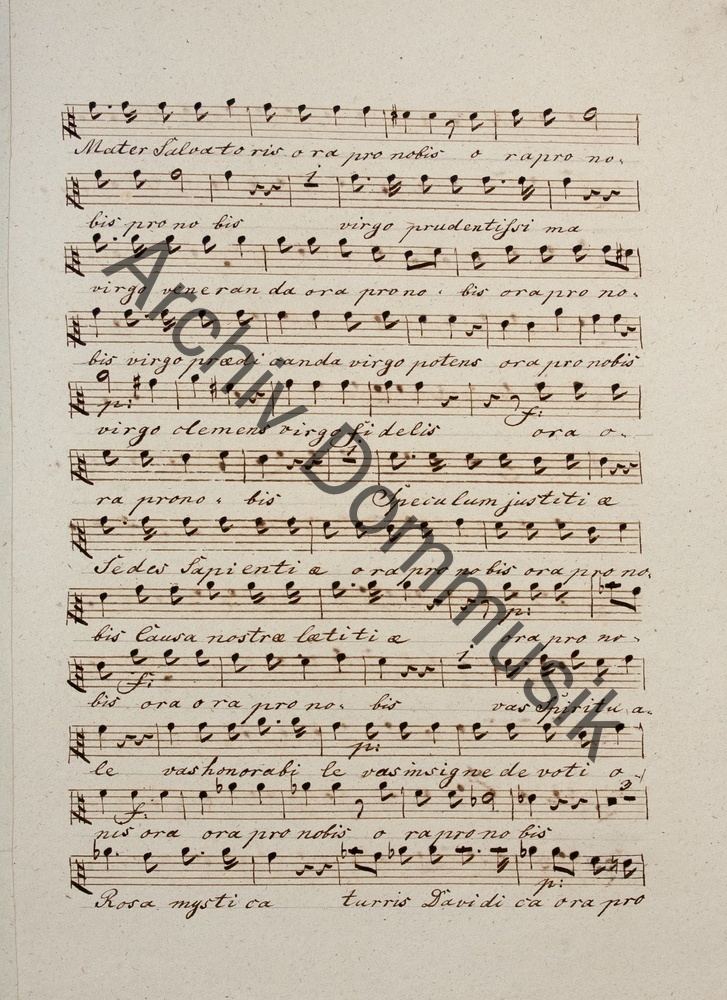 Mater Salvatoris ora pro nobis o rapro no-
1
bis pro no bis virgo prudentissi ma
virgo veneran da ora pro no - bis ora pro no-
bis virgo prædi canda virgo potens ora pro nobis
p: f:
virgo clemens virgo fi delis ora o-
1
ra prono - bis Speculum justiti æ
Sedes Sapienti æ ora pro no bis ora pro no-
p:
bis Causa nostræ lætiti æ ora pro no-
f: 1
bis ora ora pro no- bis vas Spiritu a-
p:
le vas honorabi le vas insigne de voti o-
f: 3
nis ora ora pro nobis o rapro no bis
p:
Rosa mysti ca turris Davidi ca ora pro
Archiv Dommusik